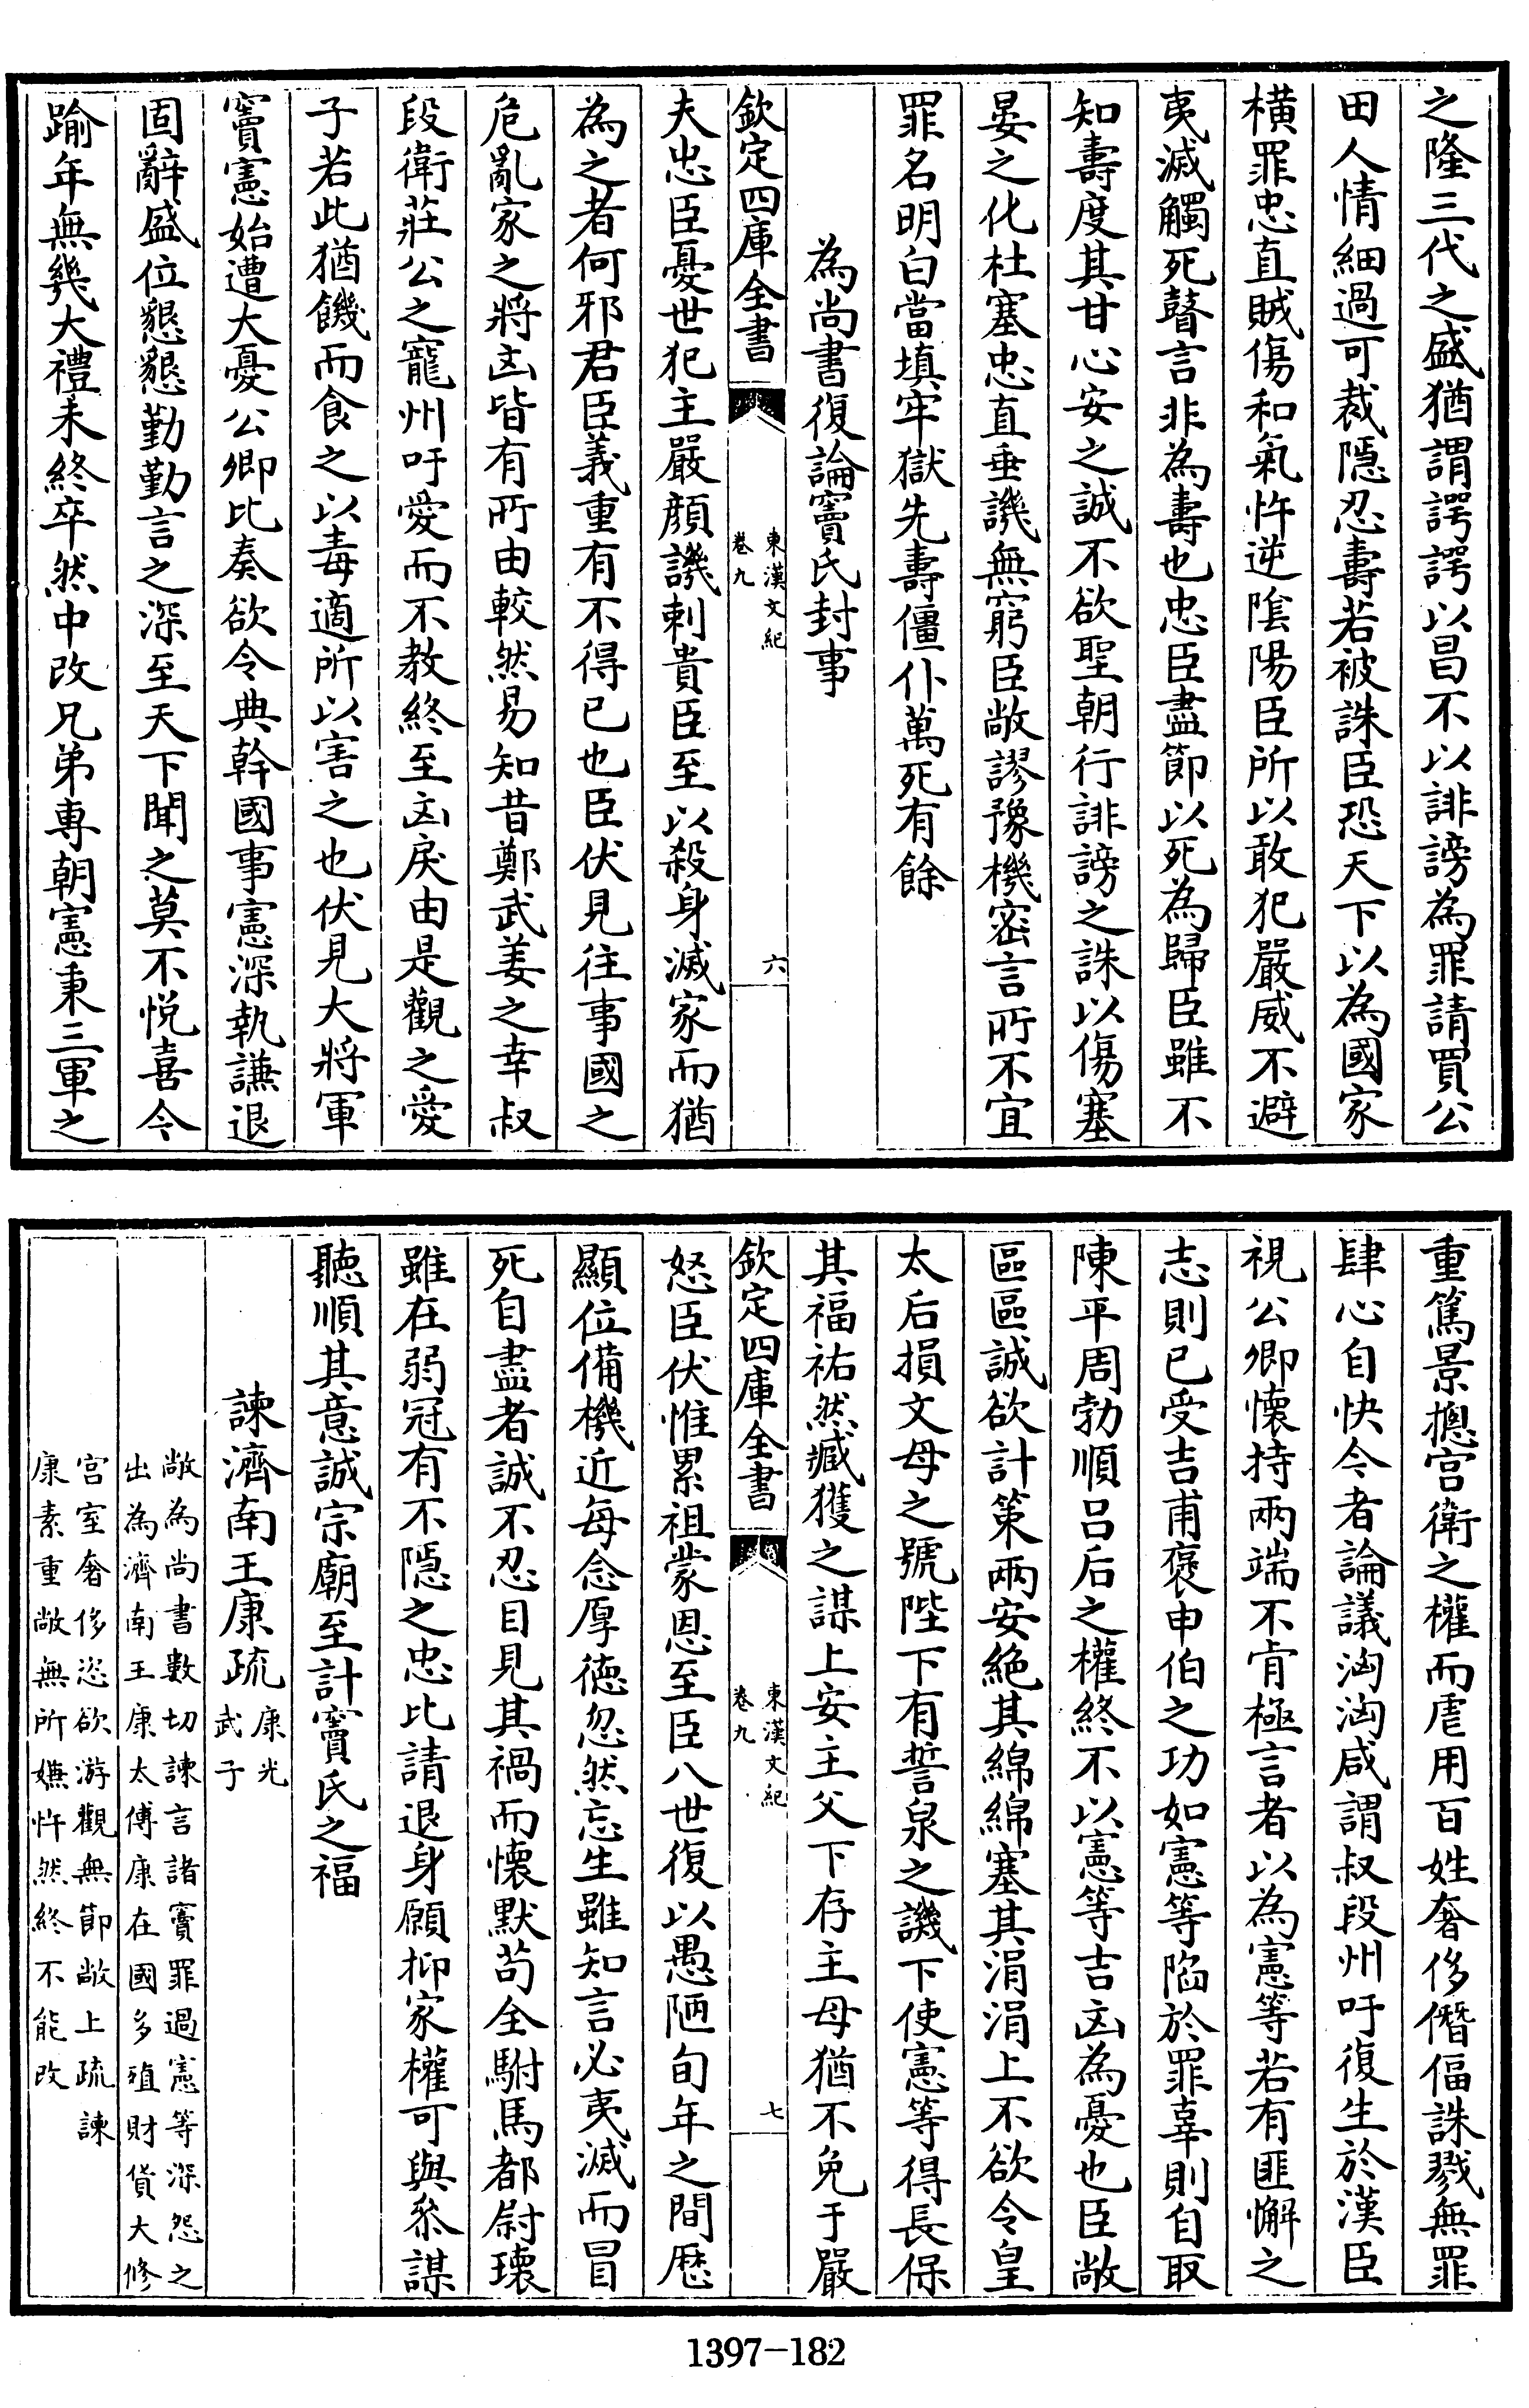 之隆三代之盛猶謂諤諤以昌不以誹謗為罪請買公
田人情細過可裁隱忍壽若被誅臣恐天下以為國家
橫罪忠直賊傷和氣忤逆陰陽臣所以敢犯嚴威不避
夷滅觸死瞽言非為壽也忠臣盡節以死為歸臣雖不
知壽度其甘心安之誠不欲聖朝行誹謗之誅以傷塞
晏之化杜塞忠直垂譏無窮臣敞謬豫機密言所不宜
罪名明白當填牢獄先壽僵仆萬死有餘
為尚書復論竇氏封事
欽定四庫全書
東漢文紀
卷九
六
夫忠臣憂世犯主嚴顏譏刺貴臣至以殺身滅家而猶
為之者何邪君臣義重有不得已也臣伏見往事國之
危亂家之將凶皆有所由較然易知昔鄭武姜之幸叔
段衛莊公之寵州吁愛而不教終至凶戾由是觀之愛
子若此猶饑而食之以毒適所以害之也伏見大將軍
竇憲始遭大憂公卿比奏欲令典幹國事憲深執謙退
固辭盛位懇懇勤勤言之深至天下聞之莫不悅喜今
踰年無幾大禮未終卒然中改兄弟專朝憲秉三軍之
重篤景摠宮衛之權而虐用百姓奢侈僭偪誅戮無罪
肆心自快今者論議洶洶咸謂叔段州吁復生於漢臣
視公卿懷持兩端不肯極言者以為憲等若有匪懈之
志則已受吉甫褒申伯之功如憲等陷於罪辜則自取
陳平周勃順呂后之權終不以憲等吉凶為憂也臣敞
區區誠欲計策兩安絶其綿綿塞其涓涓上不欲令皇
太后損文母之號陛下有誓泉之譏下使憲等得長保
其福祐然臧獲之謀上安主父下存主母猶不免于嚴
欽定四庫全書
東漢文紀
卷九
七
怒臣伏惟累祖蒙恩至臣八世復以愚陋旬年之間歷
顯位備機近每念厚德忽然忘生雖知言必夷滅而冒
死自盡者誠不忍目見其禍而懷默苟全駙馬都尉瓌
雖在弱冠有不隱之忠比請退身願抑家權可與叅謀
聽順其意誠宗廟至計竇氏之福
諫濟南王康疏
康光
武子
敞為尚書數切諫言諸竇罪過憲等深怨之
出為濟南王康太傅康在國多殖財貨大修
宮室奢侈恣欲游觀無節敞上疏諫
康素重敞無所嫌忤然終不能改
1397-182